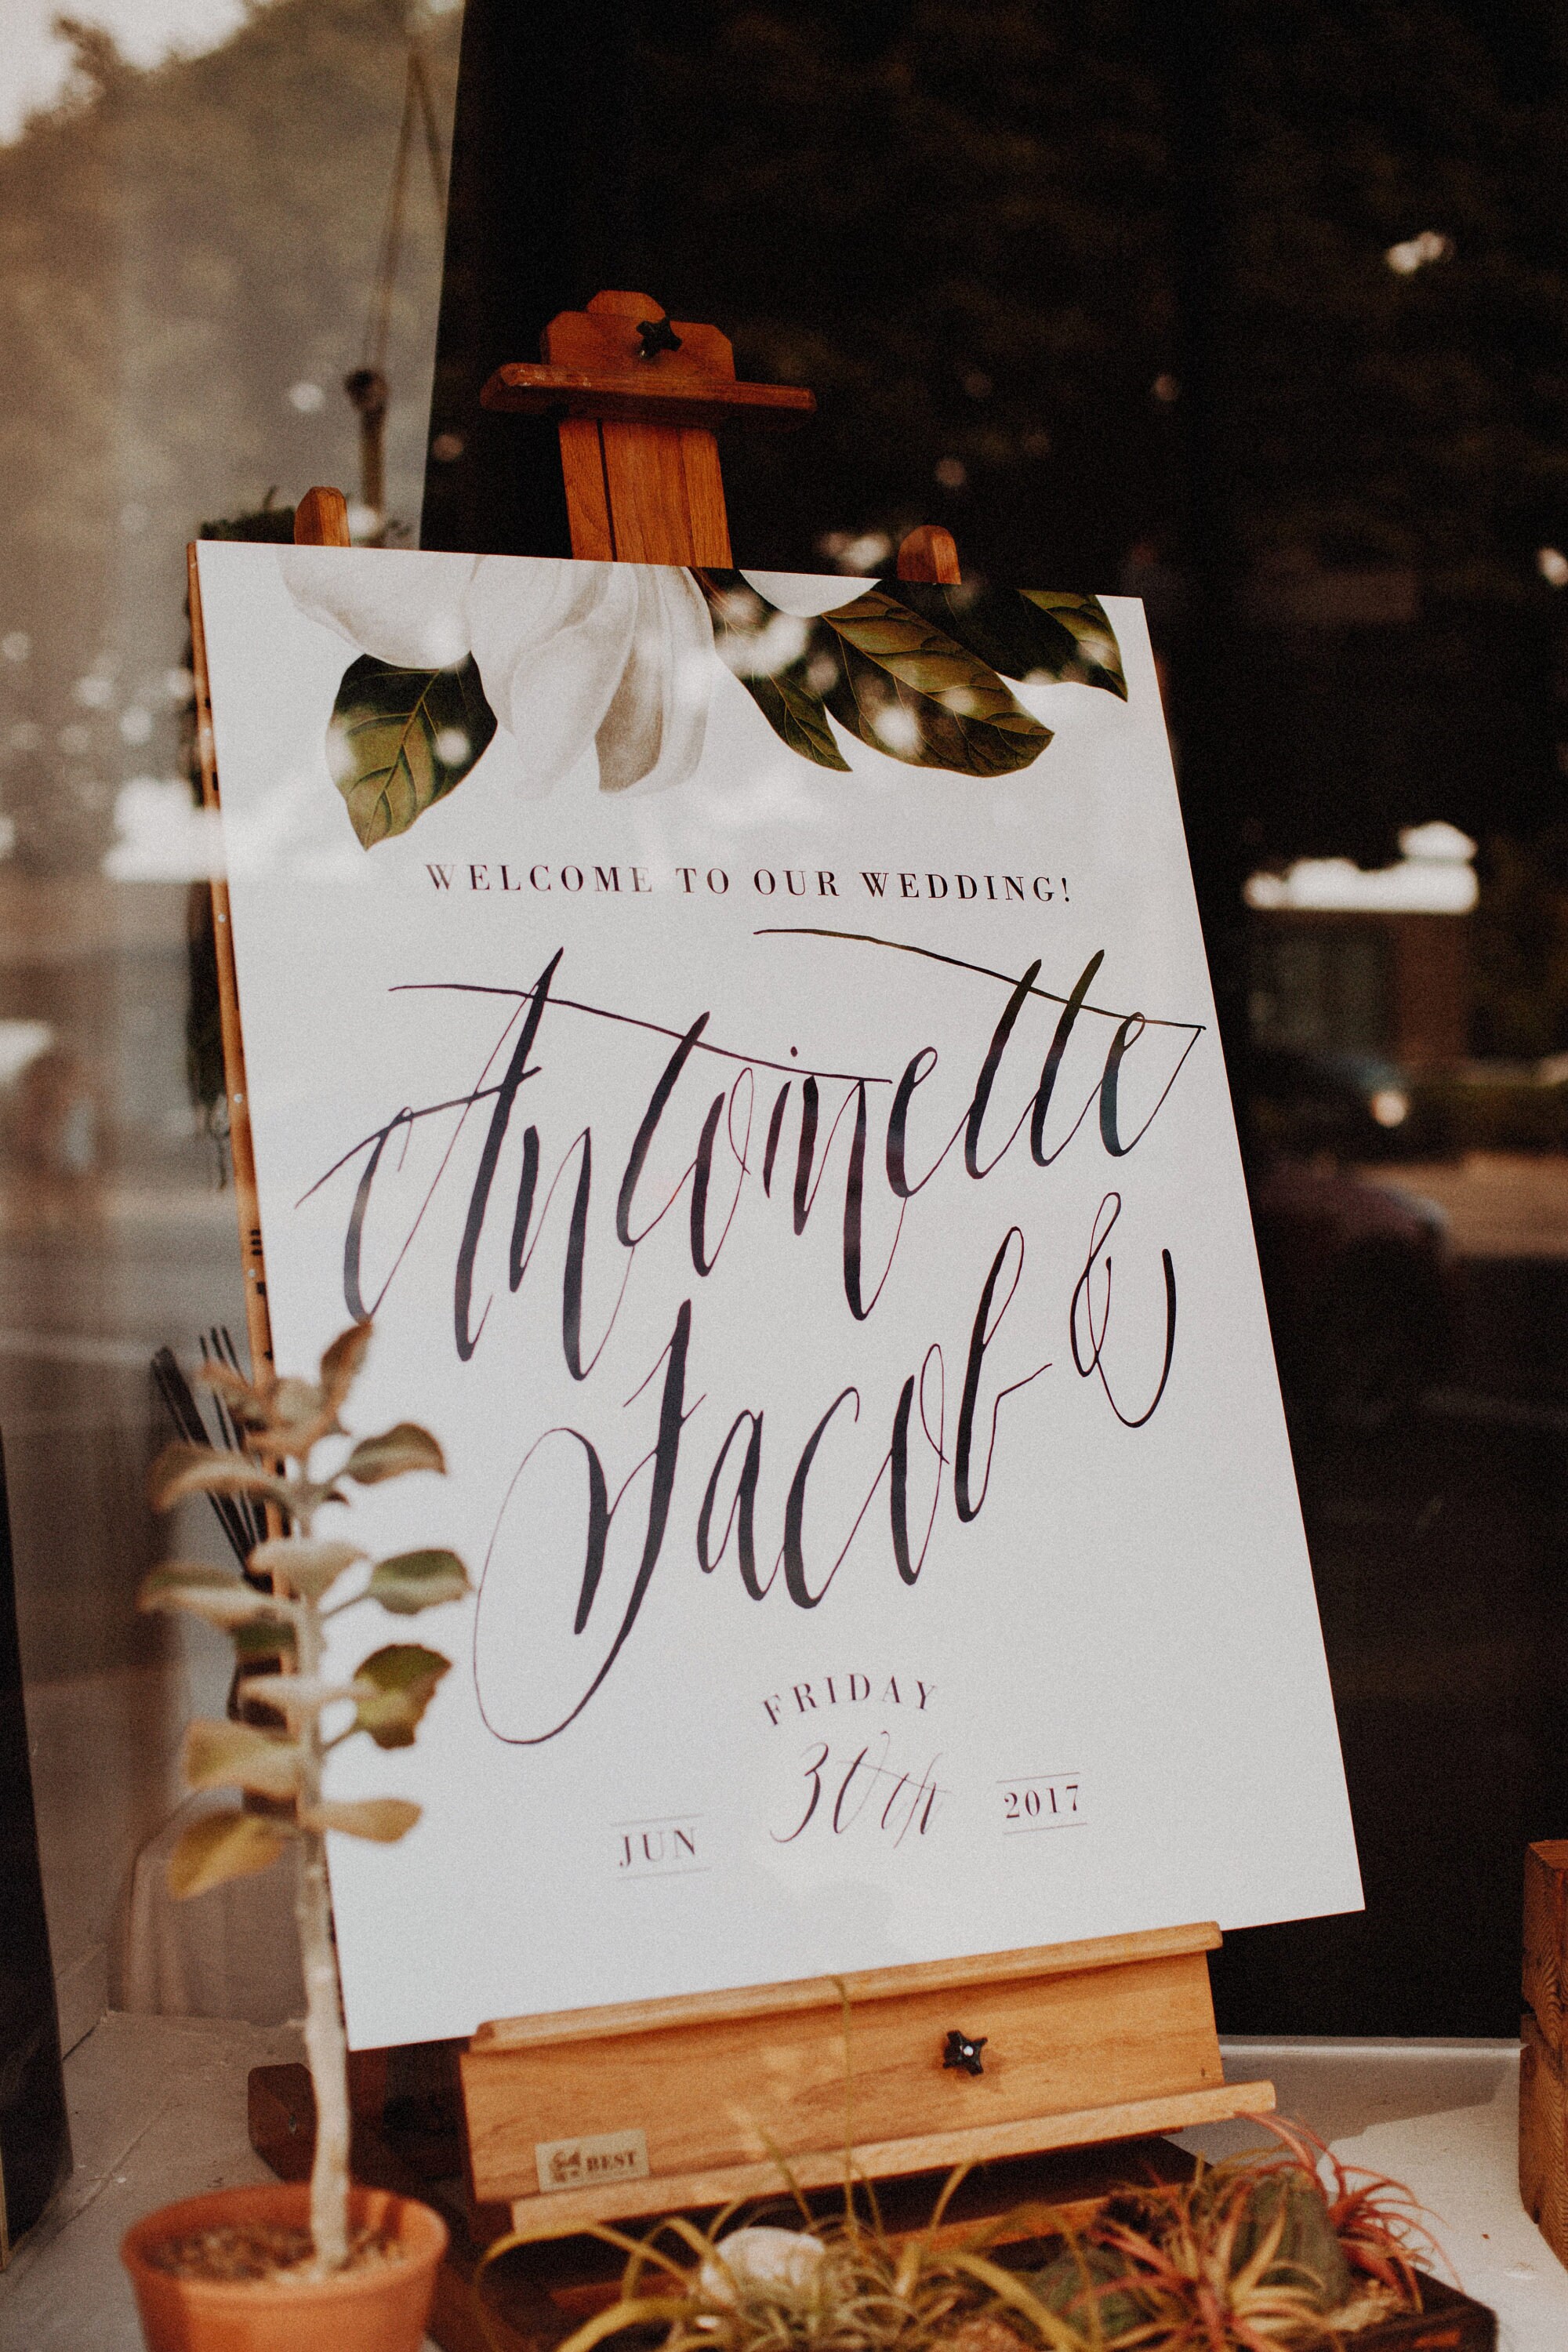 WELCOME TO OUR WEDDING!
Antoinette
&
Jacob
FRIDAY
JUN 30th 2017
BEST